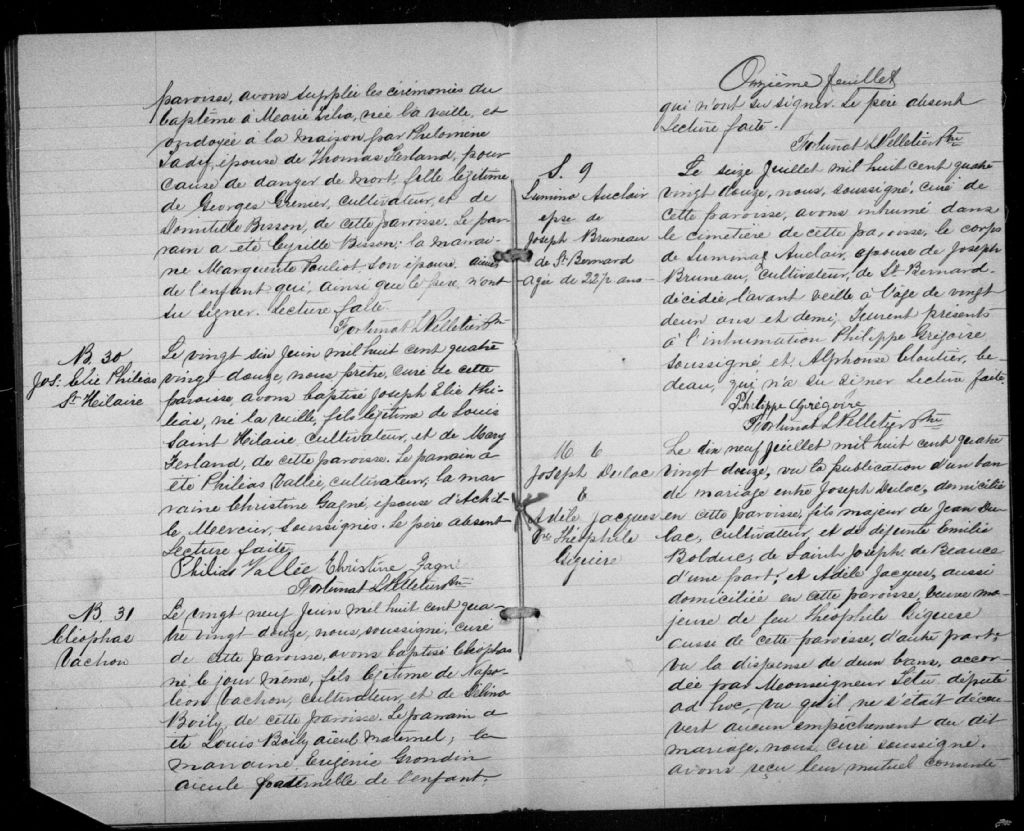 paroisse, avons supplée les cérémonies du
baptême à Marie Délia, née la veille, et
ondoyée à la maison par Philomène
Nadif, épouse de Thomas Ferland, pour
cause de danger de mort, fille légitime
de Georges Grenier, cultivateur, et de
Domitille Bisson, de cette paroisse. Le par-
rain a été Cyrille Bisson; la marrai-
ne Marguerite Pouliot son épouse,
de l'enfant qui, ainsi que le père, n'ont
su signer. Lecture faite.
Fortunat L Pelletier Ptre
B. 30
Jos. Elie Philias
St Hilaire
Le vingt six Juin mil huit cent quatre
vingt douze, nous prêtre, curé de cette
paroisse, avons baptisé Joseph Elie Phi-
lias, né la veille, fils légitime de Louis
Saint Hilaire, cultivateur, et de Mary
Ferland, de cette paroisse. Le parrain a
été Philias Vallée, cultivateur, la mar-
raine Christine Gagné, épouse d'Achil-
le Mercier, soussignés. Le père absent
Lecture faite.
Philias Vallée Christine Gagné
Fortunat L Pelletier Ptre
B. 31
Cléophas
Vachon
Le vingt neuf Juin mil huit cent qua-
tre vingt douze, nous, soussigné, curé
de cette paroisse, avons baptisé Cléophas
né le jour même, fils légitime de Napo-
léon Vachon, cultivateur, et de Délina
Boily, de cette paroisse. Le parrain a
été Louis Boily aïeul maternel; la
marraine Eugénie Grondin
aïeule paternelle de l'enfant,
Onzième feuillet
qui n'ont su signer. Le père absent
Lecture faite.
Fortunat L Pelletier Ptre
S. 9
Lumina Auclair
epse de
Joseph Bruneau
de St Bernard
agée de 22 1/2 ans
Le seize Juillet mil huit cent quatre
vingt douze, nous, soussigné, curé de
cette paroisse, avons inhumé dans
le cimetière de cette paroisse, le corps
de Lumina Auclair, épouse de Joseph
Bruneau, cultivateur, de St Bernard,
décédée l'avant veille à l'âge de vingt
deux ans et demi, Furent présents
à l'inhumation Philippe Grégoire
soussigné et Alphonse Cloutier, be-
deau, qui n'a su signer Lecture faite
Philippe Grégoire
Fortunat L Pelletier Ptre
M 6
Joseph Dulac
&
Adèle Jacques
Vve Théophile
Giguère
Le dix neuf Juillet mil huit cent quatre
vingt douze, vu la publication d'un ban
de mariage entre Joseph Dulac, domicilié
en cette paroisse, fils majeur de Jean Du-
lac, cultivateur, et de défunte Emilie
Bolduc, de Saint Joseph de Beauce
d'une part; et Adèle Jacques, aussi
domiciliée en cette paroisse, veuve ma-
jeure de feu Théophile Giguère
aussi de cette paroisse, d'autre part;
vu la dispense de deux bans, accor-
dée par Monseigneur Têtu député
ad hoc, vu qu'il ne s'était décou-
vert aucun empêchement au dit
mariage, nous curé soussigné,
avons reçu leur mutuel consente